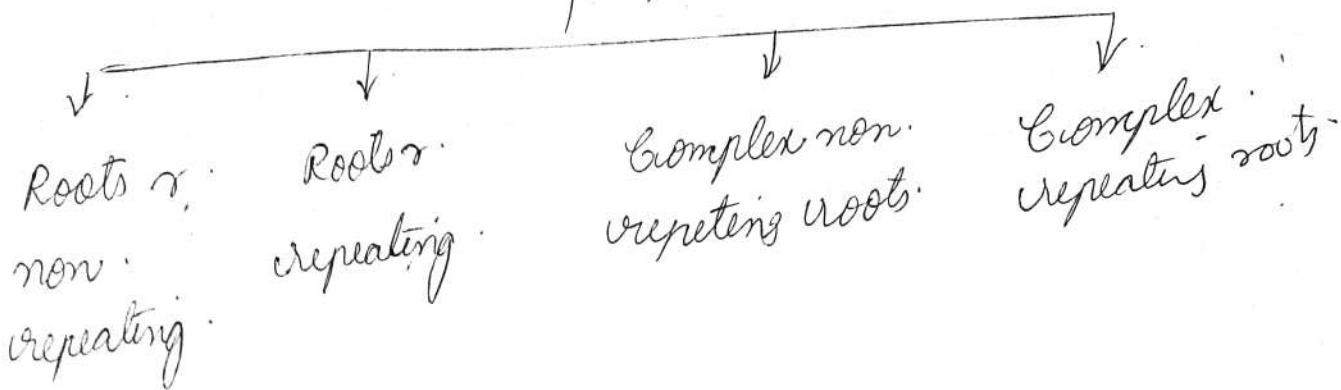 Roots r.
non.
repeating.
Roots r.
repeating.
Complex non.
repeting roots.
Complex.
repeating roots.